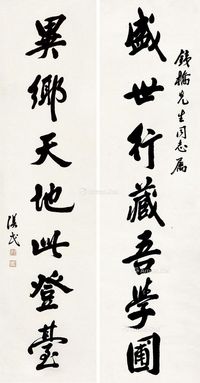 铁桥先生同志属
盛世行藏吾学圃
異鄉天地此登臺
漢民